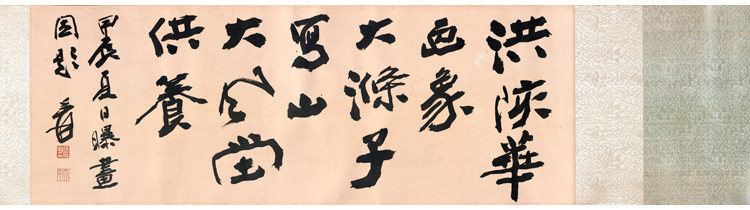 洪陔華
画象
大滌子
寫山
大風堂
供養
甲辰夏日曝畫
因題 爰